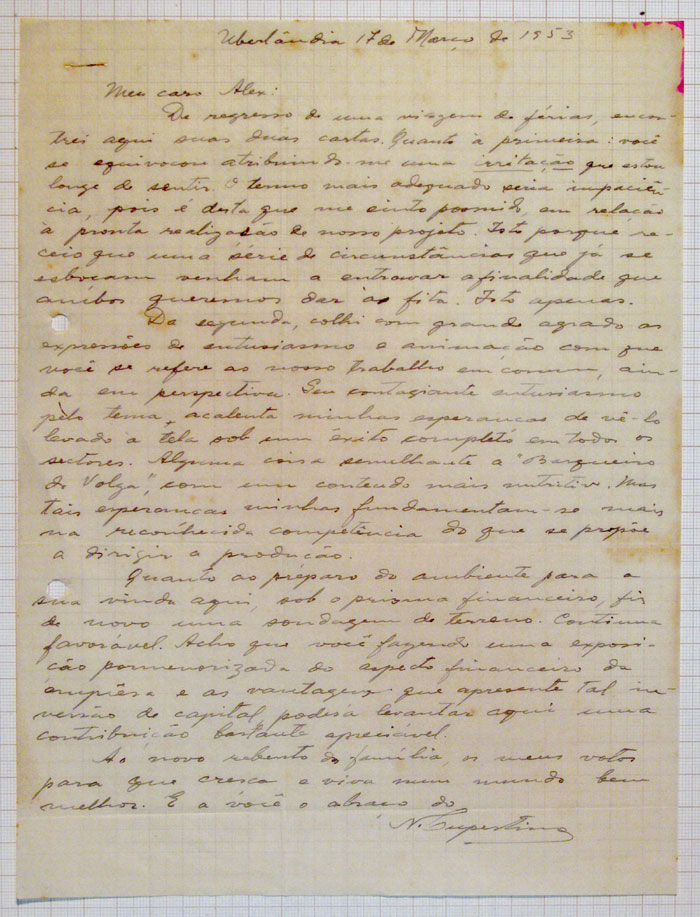 Uberlândia 17 de Março de 1953
Meu caro Alex:
De regresso de uma viagem de férias, encon-
trei aqui suas duas cartas. Quanto à primeira: você
se equivocou atribuindo-me uma irritação que estou
longe de sentir. O termo mais adequado seria impaciên-
cia, pois é desta que me sinto possuido em relação
à pronta realização de nosso projeto. Isto porque re-
ceio que uma série de circunstâncias que já se
esbocam venham a entravar a finalidade que
ambos queremos dar às fita. Isto apenas.
Da segunda, colhi com grande agrado as
expressões de entusiasmo e animação com que
você se refere ao nosso trabalho em comum, ain-
da em perspectiva. Seu contagiante entusiasmo
pelo tema, acalenta minhas esperancas de vê-lo
levado à tela sob um êxito completo em todos os
sectores. Alguma coisa semelhante a "Barqueiro
do Volga", com um conteudo mais nutritivo. Mas
tais esperancas minhas fundamentam-se mais
na reconhecida competência do que se propõe
a dirigir a produção.
Quanto ao preparo do ambiente para a
sua vinda aqui, sob o prisma financeiro, fiz
de novo uma sondagem de terreno. Continua
favorável. Acho que você fazendo uma exposi-
ção pormenorizada do aspecto financeiro da
emprêsa e as vantagens que apresente tal in-
versão de capital, poderá levantar aqui uma
contribuição bastante apreciável.
Ao novo rebento da família, os meus votos
para que cresca e viva num mundo bem
melhor. E a você o abraco do
N. Cupertino